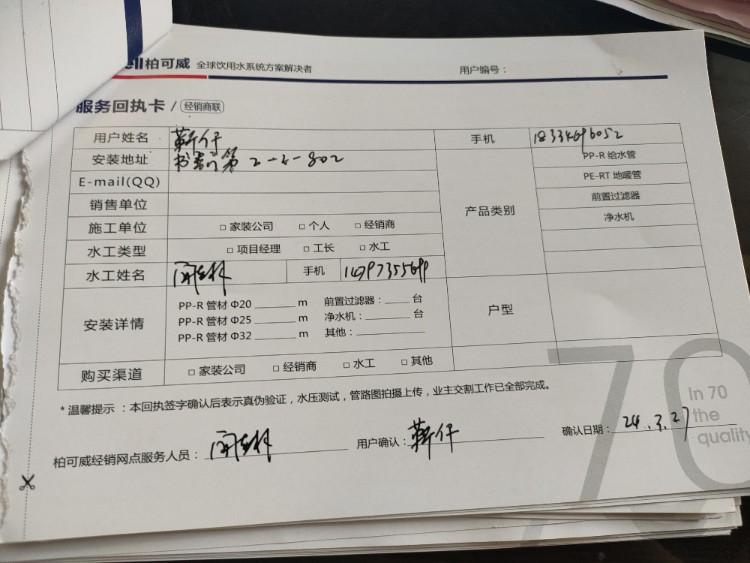 ell柏可威 全球饮用水系统方案解决者 用户编号：
服务回执卡 / 经销商联
用户姓名 靳仔 手机
安装地址 书香门第 2-4-802 产品类别 PP-R 给水管
E-mail(QQ) PE-RT 地暖管
销售单位 前置过滤器
施工单位 □ 家装公司 □ 个人 □ 经销商 净水机
水工类型 □ 项目经理 □ 工长 □ 水工
水工姓名 手机
安装详情 户型
PP-R 管材 Φ20 ______ m 前置过滤器：____ 台
PP-R 管材 Φ25 ______ m 净水机：______ 台
PP-R 管材 Φ32 ______ m 其他：______
购买渠道 □ 家装公司 □ 经销商 □ 水工 □ 其他
* 温馨提示：本回执签字确认后表示真伪验证，水压测试，管路图拍摄上传，业主交割工作已全部完成。
柏可威经销网点服务人员： 用户确认：靳仔 确认日期：24.3.27
70
In 70
the
quality